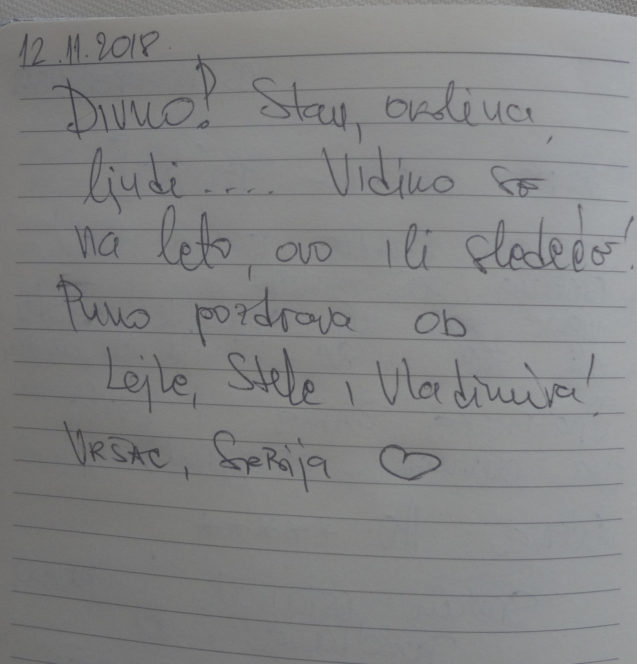 12.11.2018.
Divno! Stan, okolina,
ljudi.... Vidimo se
na leto, ovo ili sledeće!
Puno pozdrava od
Lejle, Stele i Vladimira!
VRŠAC, SRBija ♡